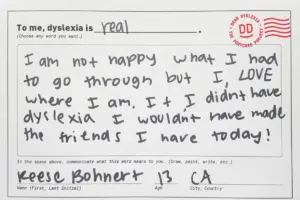 To me, dyslexia is real.
(Choose any word you want.)
DEAR DYSLEXIA
DD
THE POSTCARD PROJECT
I am not happy what I had
to go through but I, LOVE
where I am. I + I didnt have
dyslexia I wouldnt have made
the friends I have today!
In the space above, communicate what this word means to you. (Draw, paint, write, etc.)
Reese Bohnert 13 CA
Name (First, Last Initial) Age City, Country